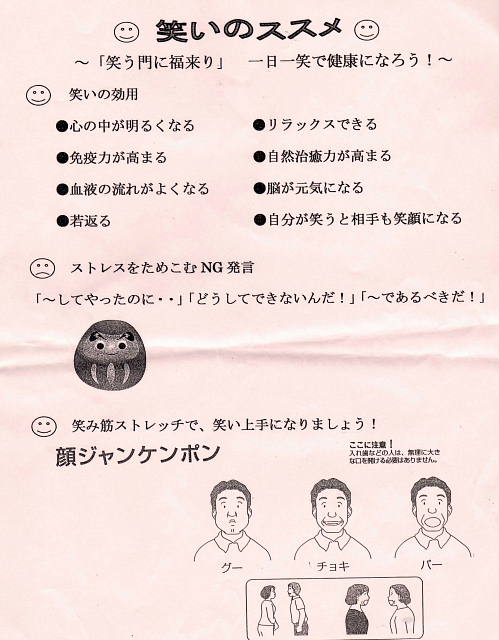 笑いのススメ
～「笑う門に福来り」　一日一笑で健康になろう！～
笑いの効用
●心の中が明るくなる
●リラックスできる
●免疫力が高まる
●自然治癒力が高まる
●血液の流れがよくなる
●脳が元気になる
●若返る
●自分が笑うと相手も笑顔になる
ストレスをためこむNG発言
「～してやったのに・・」「どうしてできないんだ！」「～であるべきだ！」
笑み筋ストレッチで、笑い上手になりましょう！
顔ジャンケンポン
ここに注意！
入れ歯などの人は、無理に大き
な口を開ける必要はありません。
グー
チョキ
パー